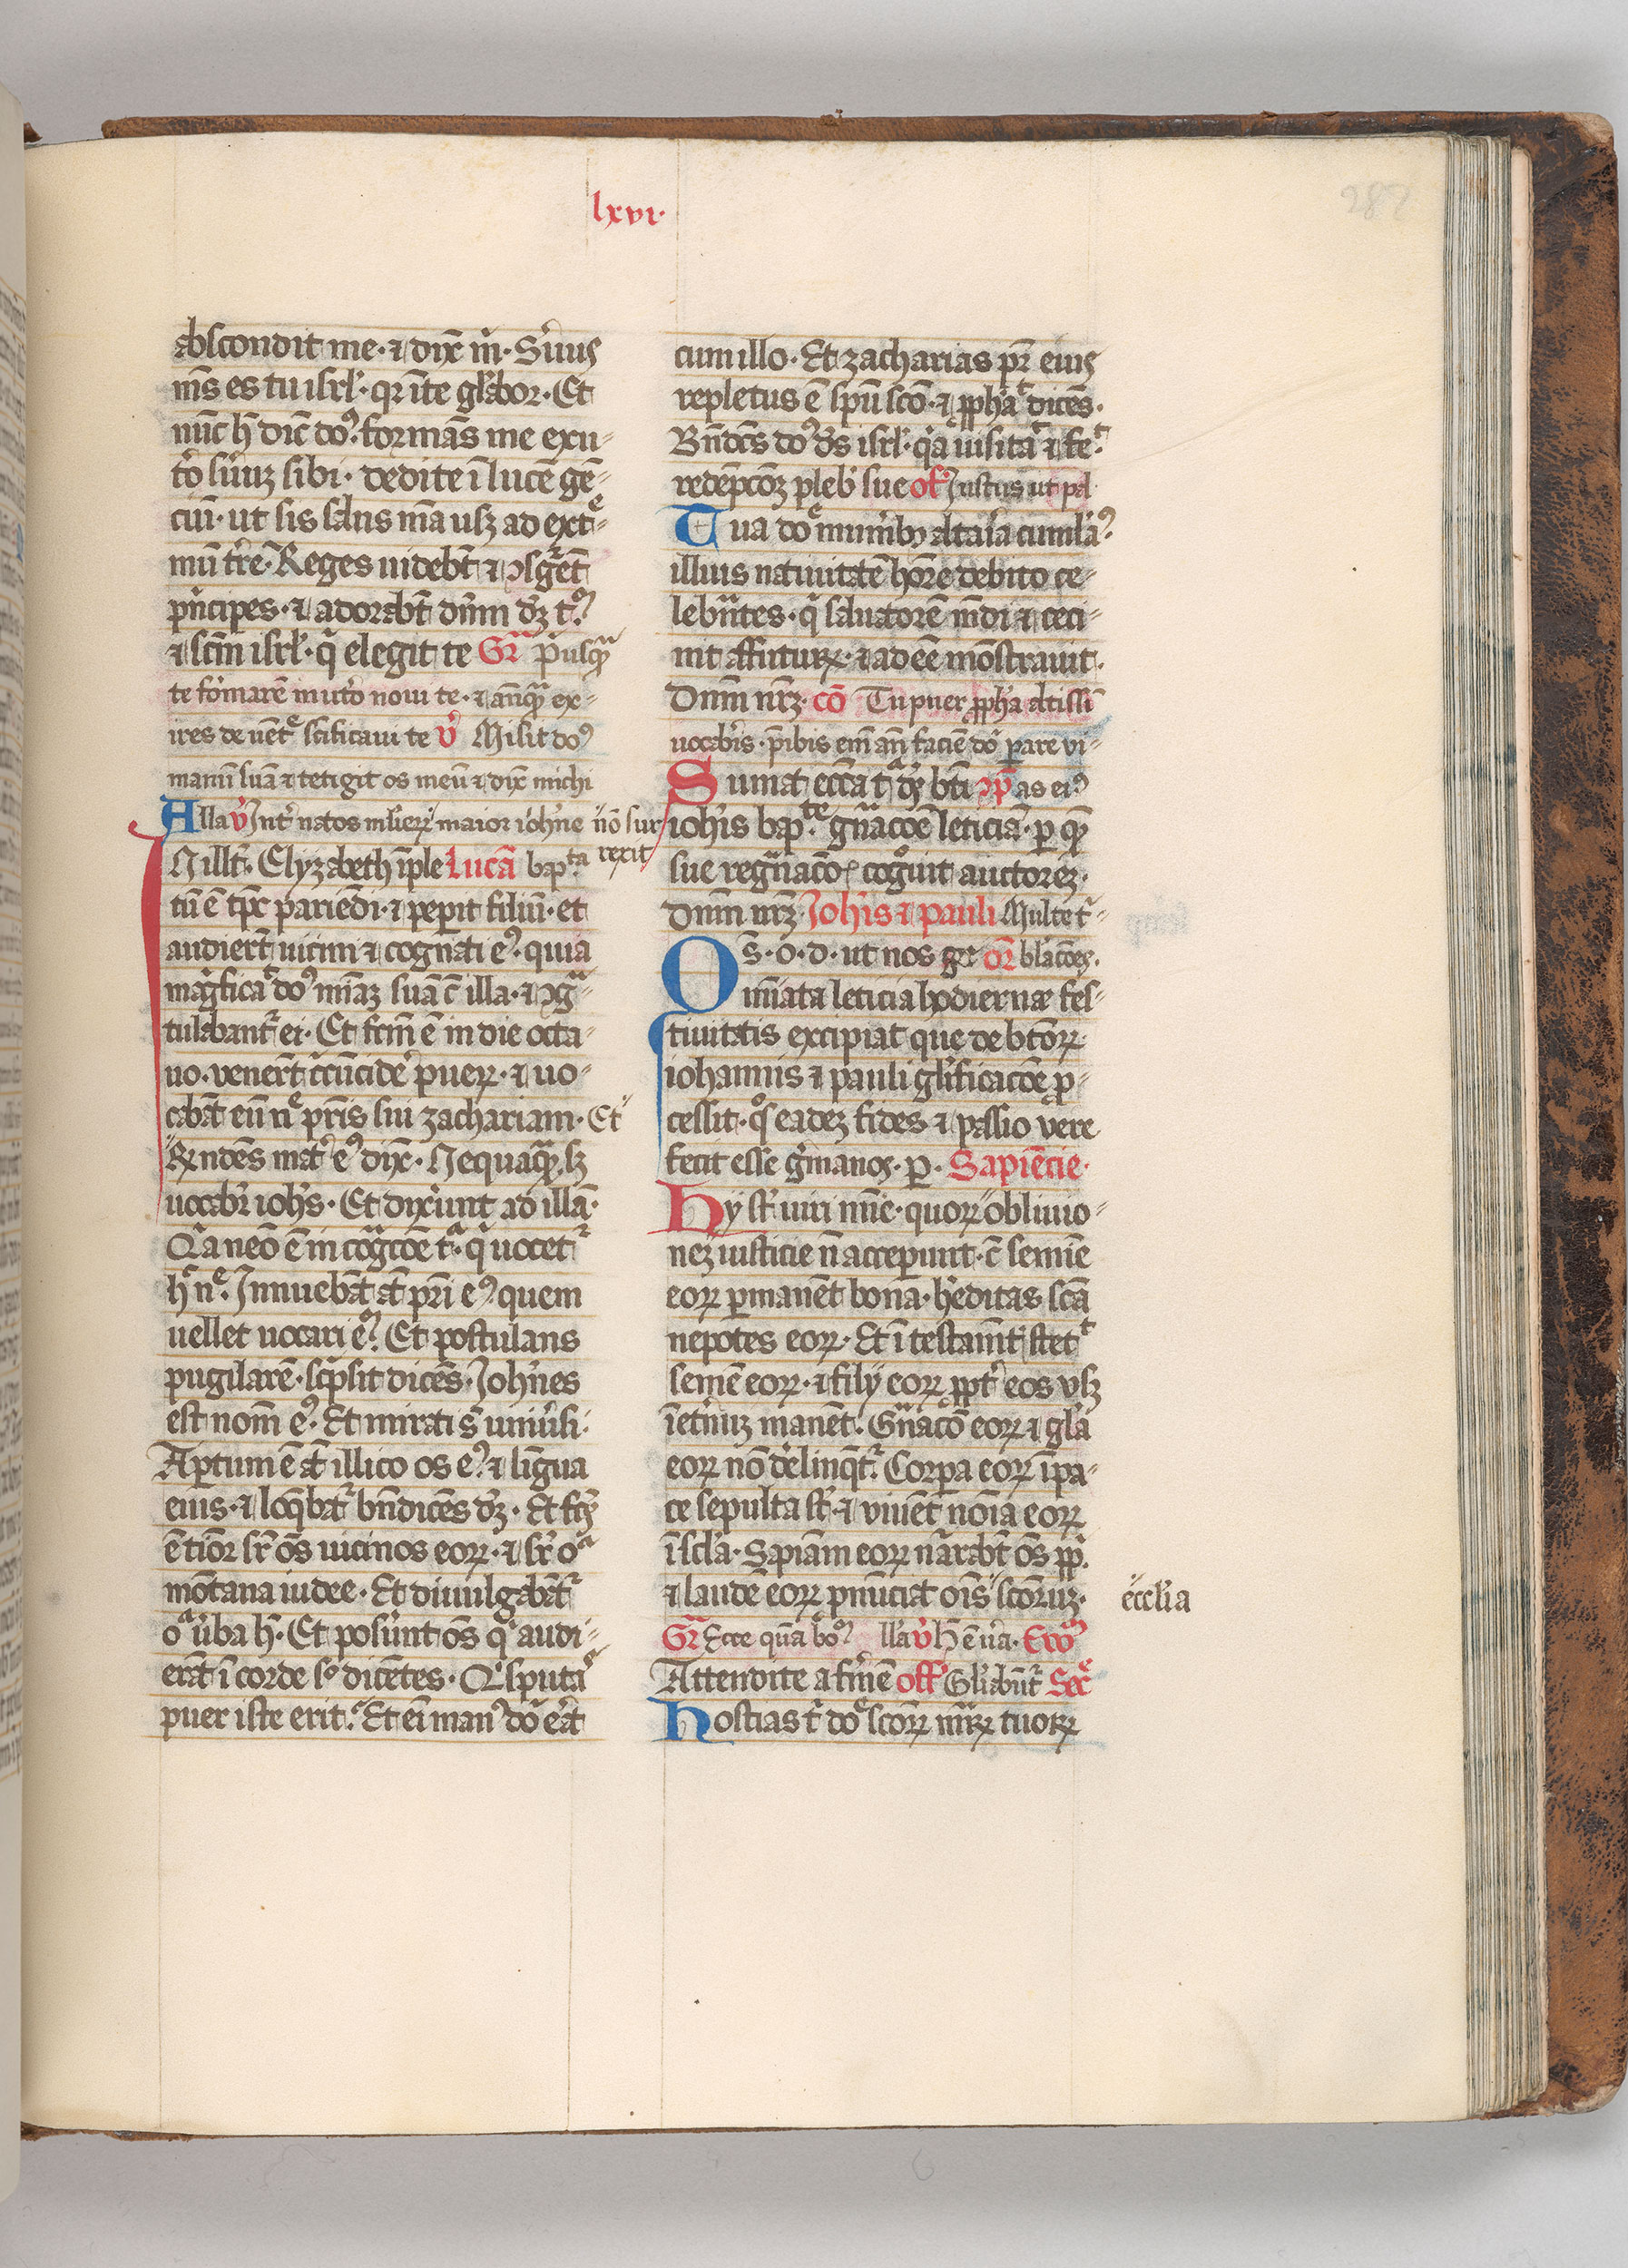 lxvi·
287
abscondit me· ⁊ dix̄ m̄· Sˀuus
m̄s es tu isrl̄· qr īte gl̄abor· Et
nūc h̄ dic̄ do9· formās me exu-
tˀo sˀuuꝫ sibi· dedi te ī lucē gē-
ciū· ut sis salus m̄a usꝫ ad extˀe-
mū tˀre· Reges uidebt̄ ⁊ ↄsgēt
pˀncipes· ⁊ adorabt̄ dn̄m dꝫ t9
⁊ sc̄m isrl̄· qͥ elegit te Gr̄ pˀusqͣ
te foˀmarē in utˀo noui te· ⁊ an̄qͣ ex-
ires de uētͤ sc̄ificaui te v̄ Misit do9
manū suā ⁊ tetigit os meū ⁊ dix̄ michi
Alla v̄ Intˀ natos mlˀierꝝ maior iohˀne nō sur
rexit
N illˀ· Elyzabeth īple Lucā bap·ta
tū ē tp̄r pariēdi· ⁊ peperit filiū· et
audiert̄ uicini ⁊ cognati e9· quia
magͥficaͣ do9 mīaꝫ suā c̄ illa· ⁊ ↄgͣ-
tulabantˀ ei· Et fcm̄ ē in die octa-
uo· venert̄ cͥcūcidˀe puerꝝ· ⁊ uo-
cabāt eū nͤ pr̄is sui zachariam· Et
Rn̄dēs matˀ e9 dix̄· Nequaqͣ sꝫ
uocabr̄ iohˀs· Et dixˀunt ad illā·
Qͥa neō ē in cogͣcoē tͣ· qͥ uocetˀ
hͦ nͤ· Innuebāt āt pr̄i e9 quem
uellet uocari e9· Et postulans
pugilarē· scˀpsit dicēs· Johˀnes
est nom̄ e9· Et mirati s̄ uniuˀsi·
Aptum ē āt illico os e9· ⁊ lingua
eius· ⁊ loqͤbatˀ bn̄dicēs dꝫ· Et fcꝫ
ē tīor sr̄ os̄ uicinos eorꝝ· ⁊ sr̄ oͣ
mōtana iudee· Et diuulgabātˀ
oͣ uˀba h̄· Et posuˀnt os̄ qͥ audi-
erāt ī corde sͦ dicētes· Qͥsputaͤ
puer iste erit· Et eī man9 dōͥ eˀat
cum illo· Et zacharias pr̄ eius
repletus ē sp̄u scō· ⁊ ꝓphaͣ dicēs·
Bn̄dcs̄ do9 ds̄ isrl̄· qͥa uisitaͥ ⁊ feͨ·
redēpcōꝫ plebˀ sue of̄ Justus ut pal
Tua doͤ munˀibꝫ altaˀia cumlam9·
illius natiuitatē hoˀre debito ce-
lebͣntes· qͥ saluatorē mˀdi ⁊ ceci-
nit affuturꝝ· ⁊ adeē mōstrauit·
Dn̄m nr̄ꝫ· cō Tu puer ꝓpha altissī
uocabˀis· pˀibis em̄ an̄ faciē doͥ parˀe vi-
Sumat ecc̄a tͣ dˀs bt̄i ↄp̄as ei9
iohˀis bap·te gn̄acoē leticiā· ꝑ qͣ
sue regn̄acō cogͦuit auctorēꝫ·
Dn̄m nr̄ꝫ· Johˀis ⁊ pauli Multe tˀ-
Os̄· o· d· ut nos ge or̄ blācōes·
minata leticia hodiernæ fes-
tiuitatis excipiat que de btōrꝝ
iohannis ⁊ pauli glˀificacōe ꝓ-
cessit· qͦs eadeꝫ fides ⁊ passio vere
fecit esse gˀmanos· ꝑ· Sapiēcie·
Hy st̄ uiri mīe· quorꝝ obliuio-
neꝫ iusticie n̄ acceperunt· c̄ semīe
eorꝝ permanēt bona· hˀeditas scā
nepōtes eorꝝ· Et ī testamt̄ stetͭ
semē eorꝝ· ⁊ filij eorꝝ ꝓptˀ eos vsꝫ
ī etˀnuꝫ manēt· Gn̄acō eorꝝ ⁊ glˀa
eorꝝ nō dˀelinqͤtˀ· Corpˀa eorꝝ ī pa-
ce sepulta st̄· ⁊ viuēt nōia eorꝝ
ī scl̄a· Sapīam eorꝝ nāˀrabt̄ os̄ ppˀ·
⁊ laudē eorꝝ pnūciat oīs scōruꝫ·
ecclˀia
Gr̄ Ecce qͣm bo9 lla v̄ H̄ ē vˀa· Ewͫ
Attendite a fm̄e off̄ Glˀiabūtˀ Secͤ
Hostias tˀ doͤ scōrꝝ mr̄ꝝ tuorꝝ